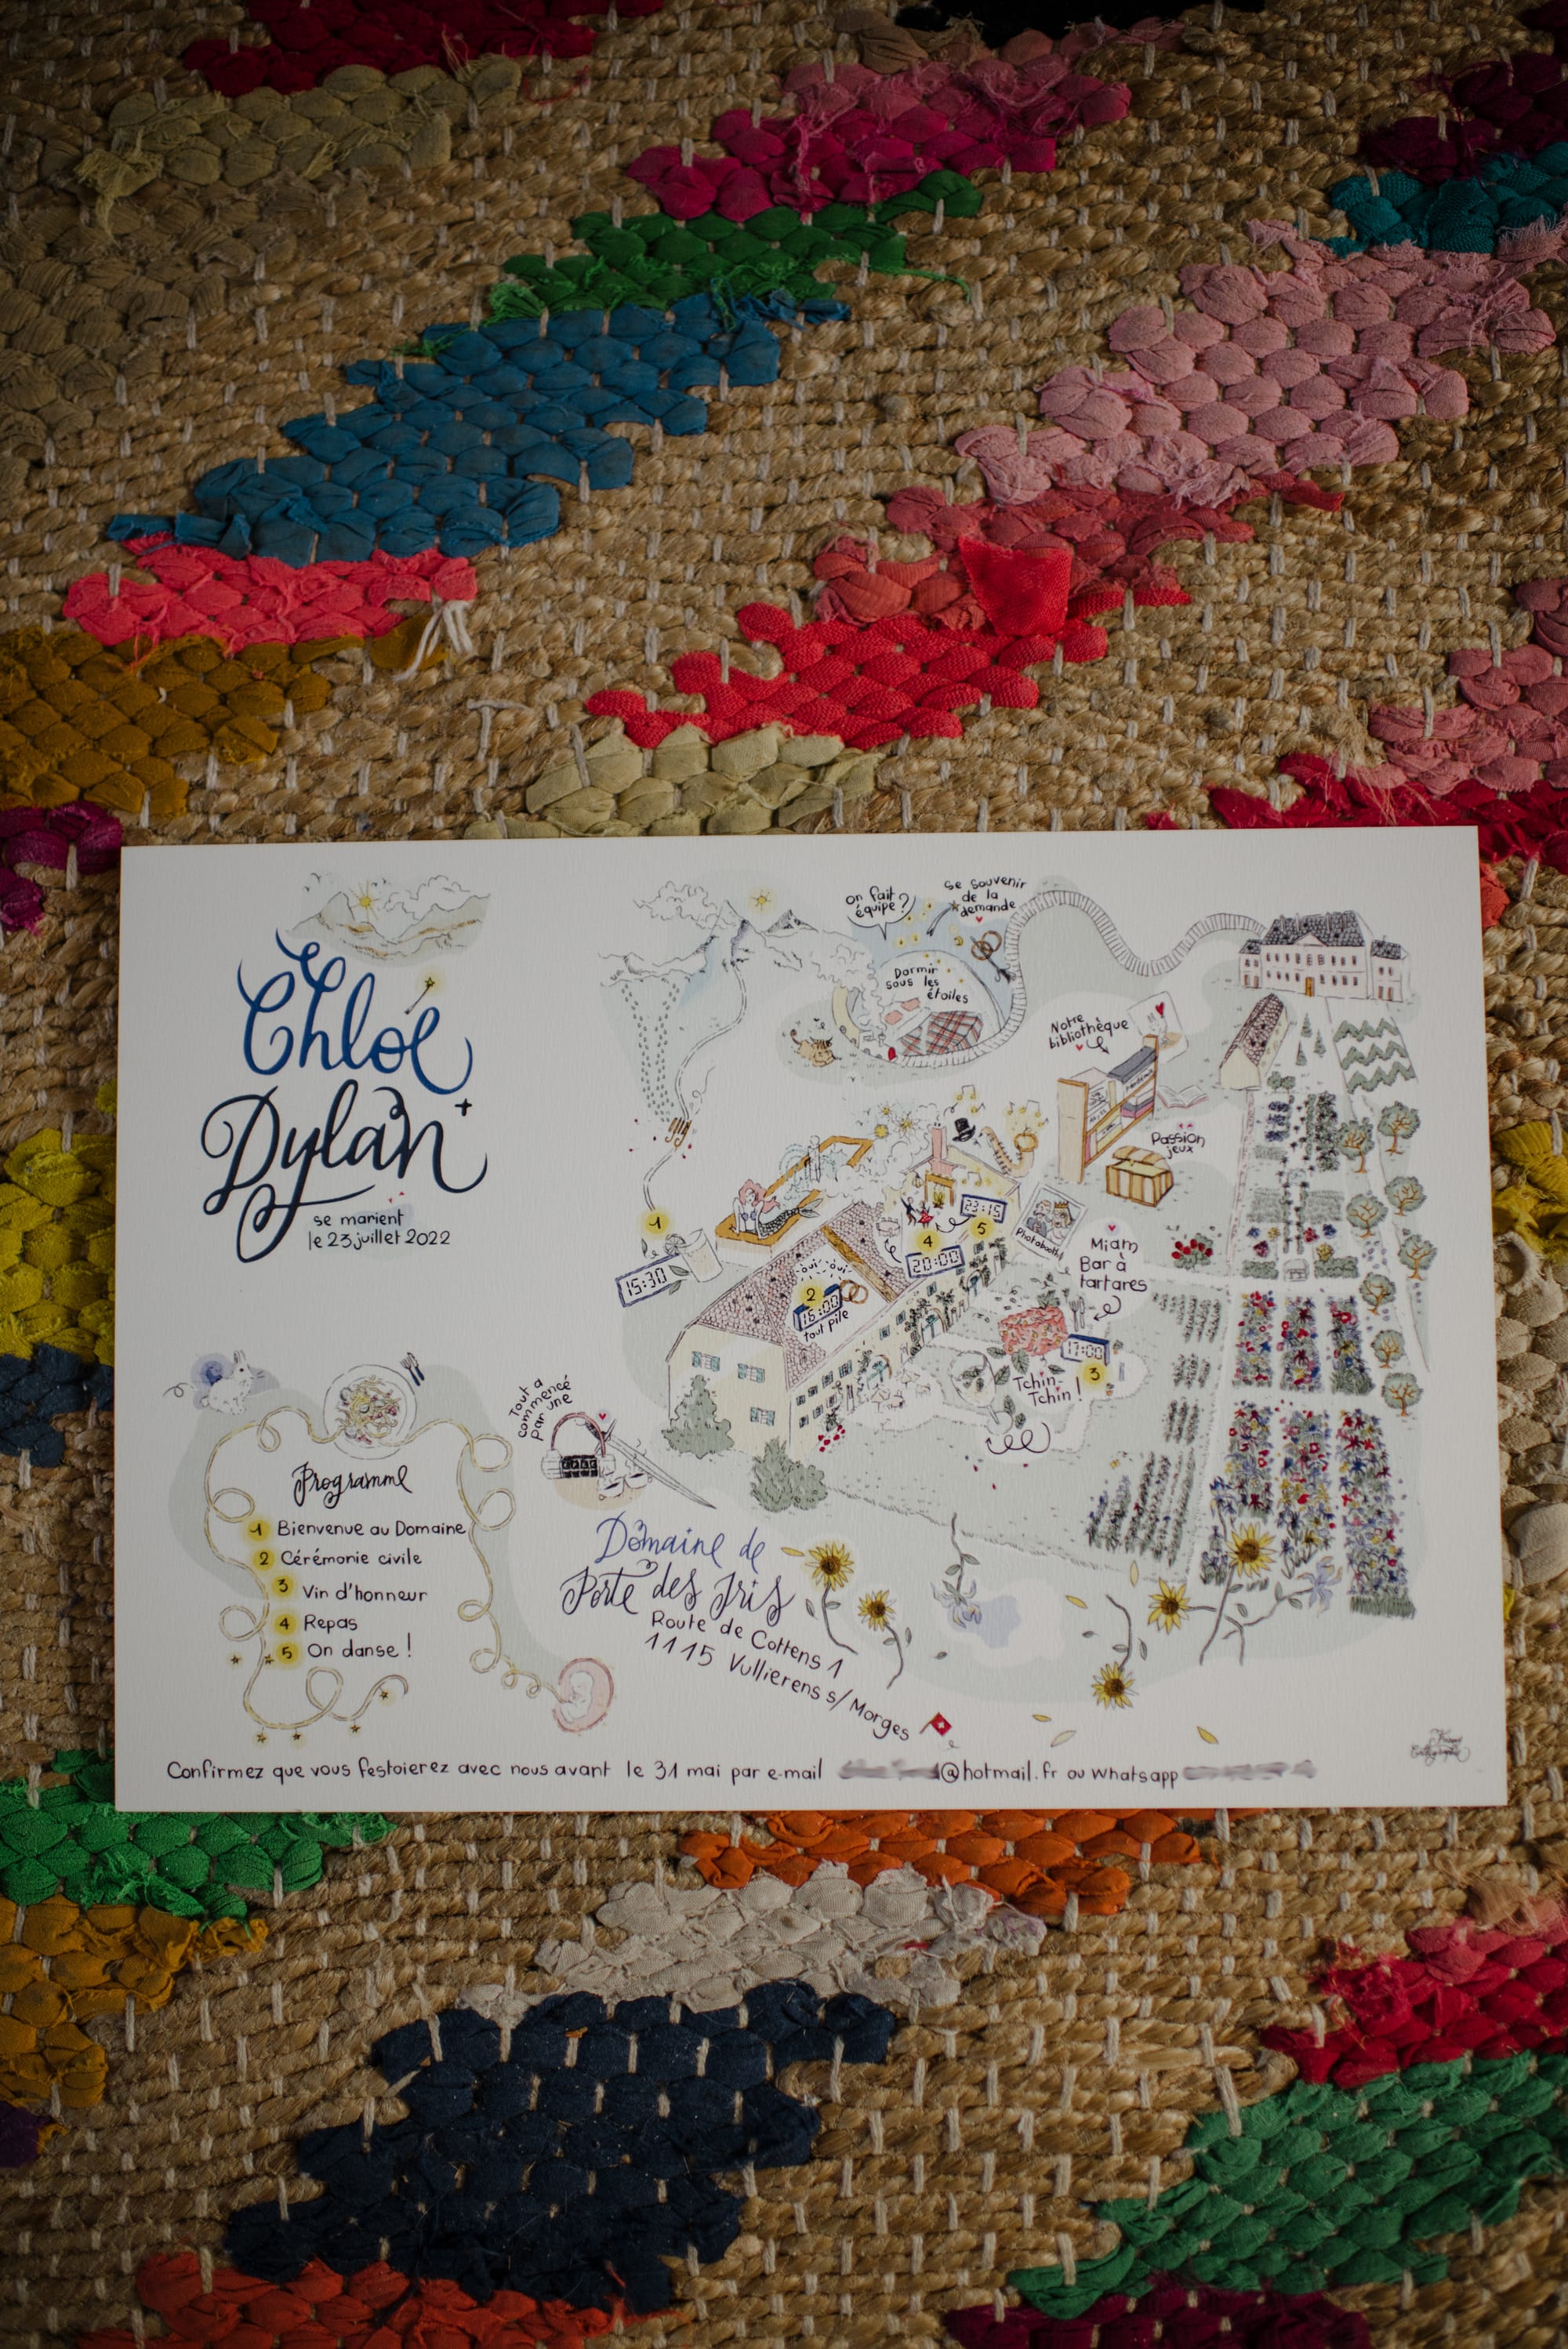 Chloé
Dylan
se marient
le 23 juillet 2022
on fait
équipe?
se souvenir
de la
demande
Dormir
sous les
étoiles
Notre
bibliothèque
Passion
jeux
Photobooth
1
15:30
oui oui
2
16:00
tout pile
4
20:00
23:15
5
Miam
Bar à
tartares
17:00
3
Tchin-
Tchin!
Tout a
commencé
par une
Programme
1 Bienvenue au Domaine
2 Cérémonie civile
3 Vin d'honneur
4 Repas
5 On danse !
Domaine de
Porte des Iris
Route de Cottens 1
1115 Vullierens s/Morges
Confirmez que vous festoierez avec nous avant le 31 mai par e-mail @hotmail.fr ou whatsapp